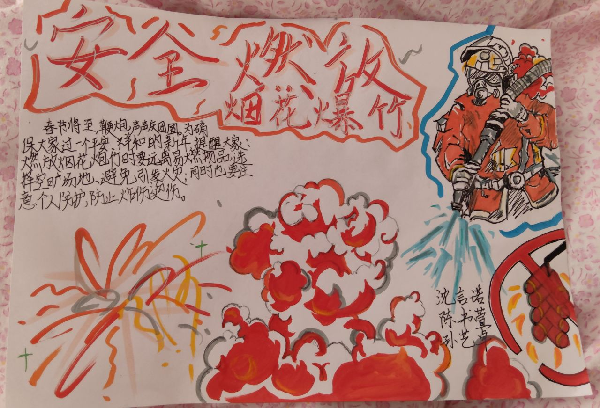 安全燃放
烟花爆竹
春节将至,鞭炮声声庆团圆,为确
保大家过一个平安、祥和的新年,提醒大家:
燃放烟花炮竹时要远离易燃物品,选
择空旷场地,避免引发火灾,同时也要注
意个人防护,防止炸伤烫伤。
沈言诺
陈书萱
孙艺卓